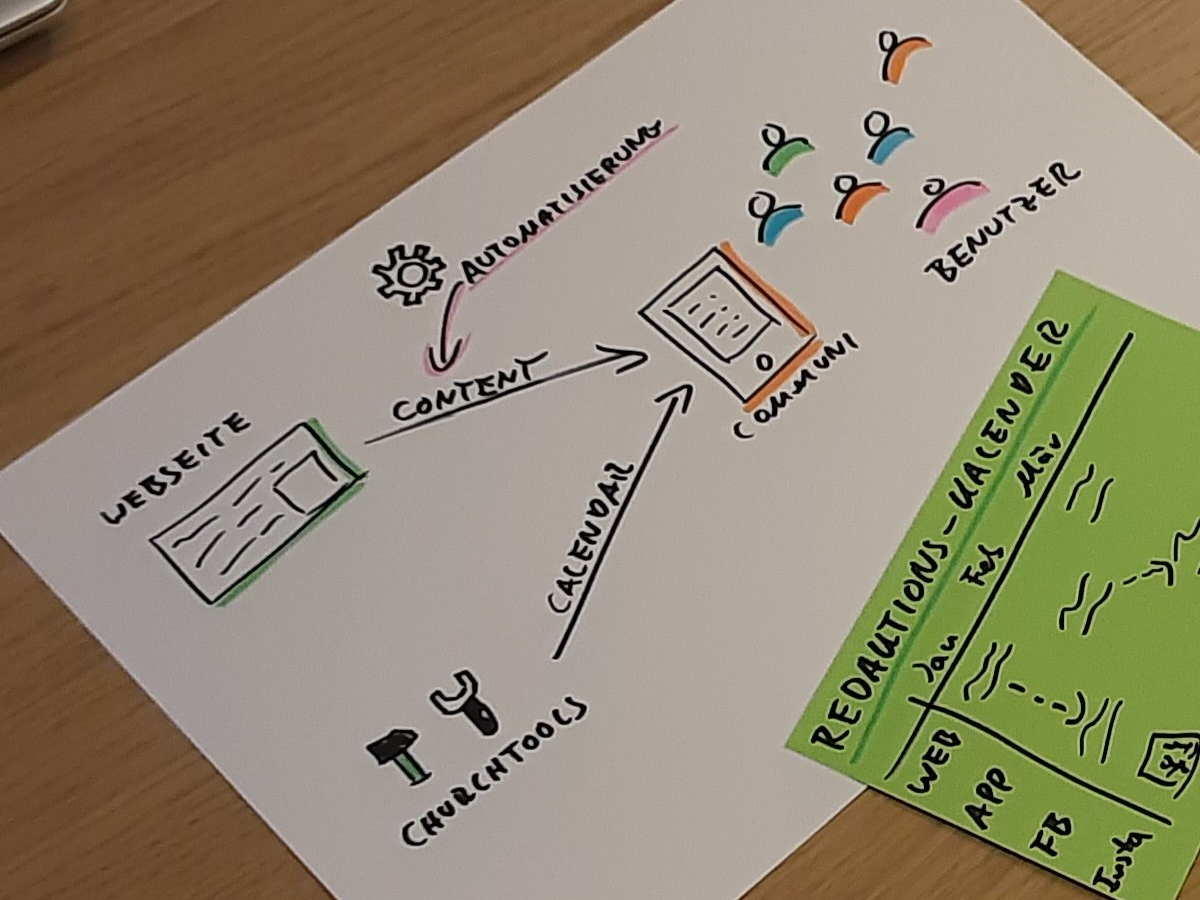 AUTOMATISIERUNG
BENUTZER
CONTENT
COMMUNI
WEBSEITE
CALENDAR
CHURCHTOOLS
REDAKTIONS-KALENDER
Jan Feb Mär
WEB
APP
FB
Insta